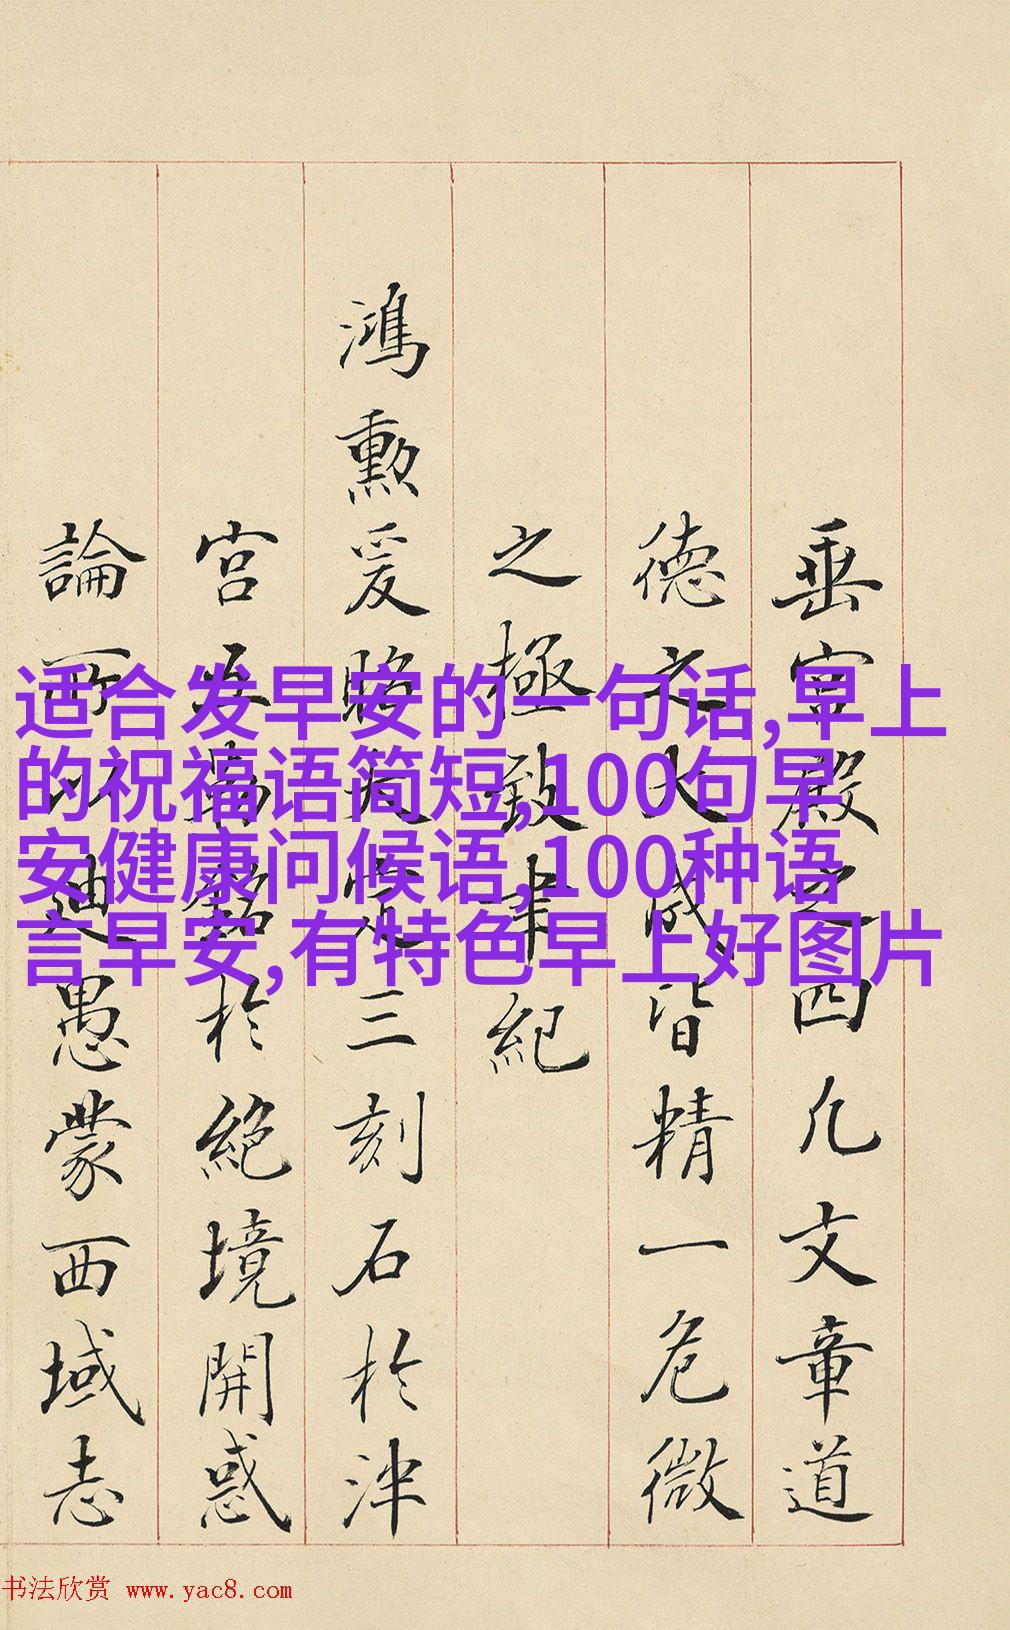 垂殿之四几文章道
德之大咸皆精一危微
之極致聿紀
鴻勲爰三刻石於津
宮於絶境開惑
論所以迪愚蒙西域志
适合发早安的一句话,早上
的祝福语简短,100句早
安健康问候语,100种语
言早安,有特色早上好图片
书法欣赏 www.yac8.com